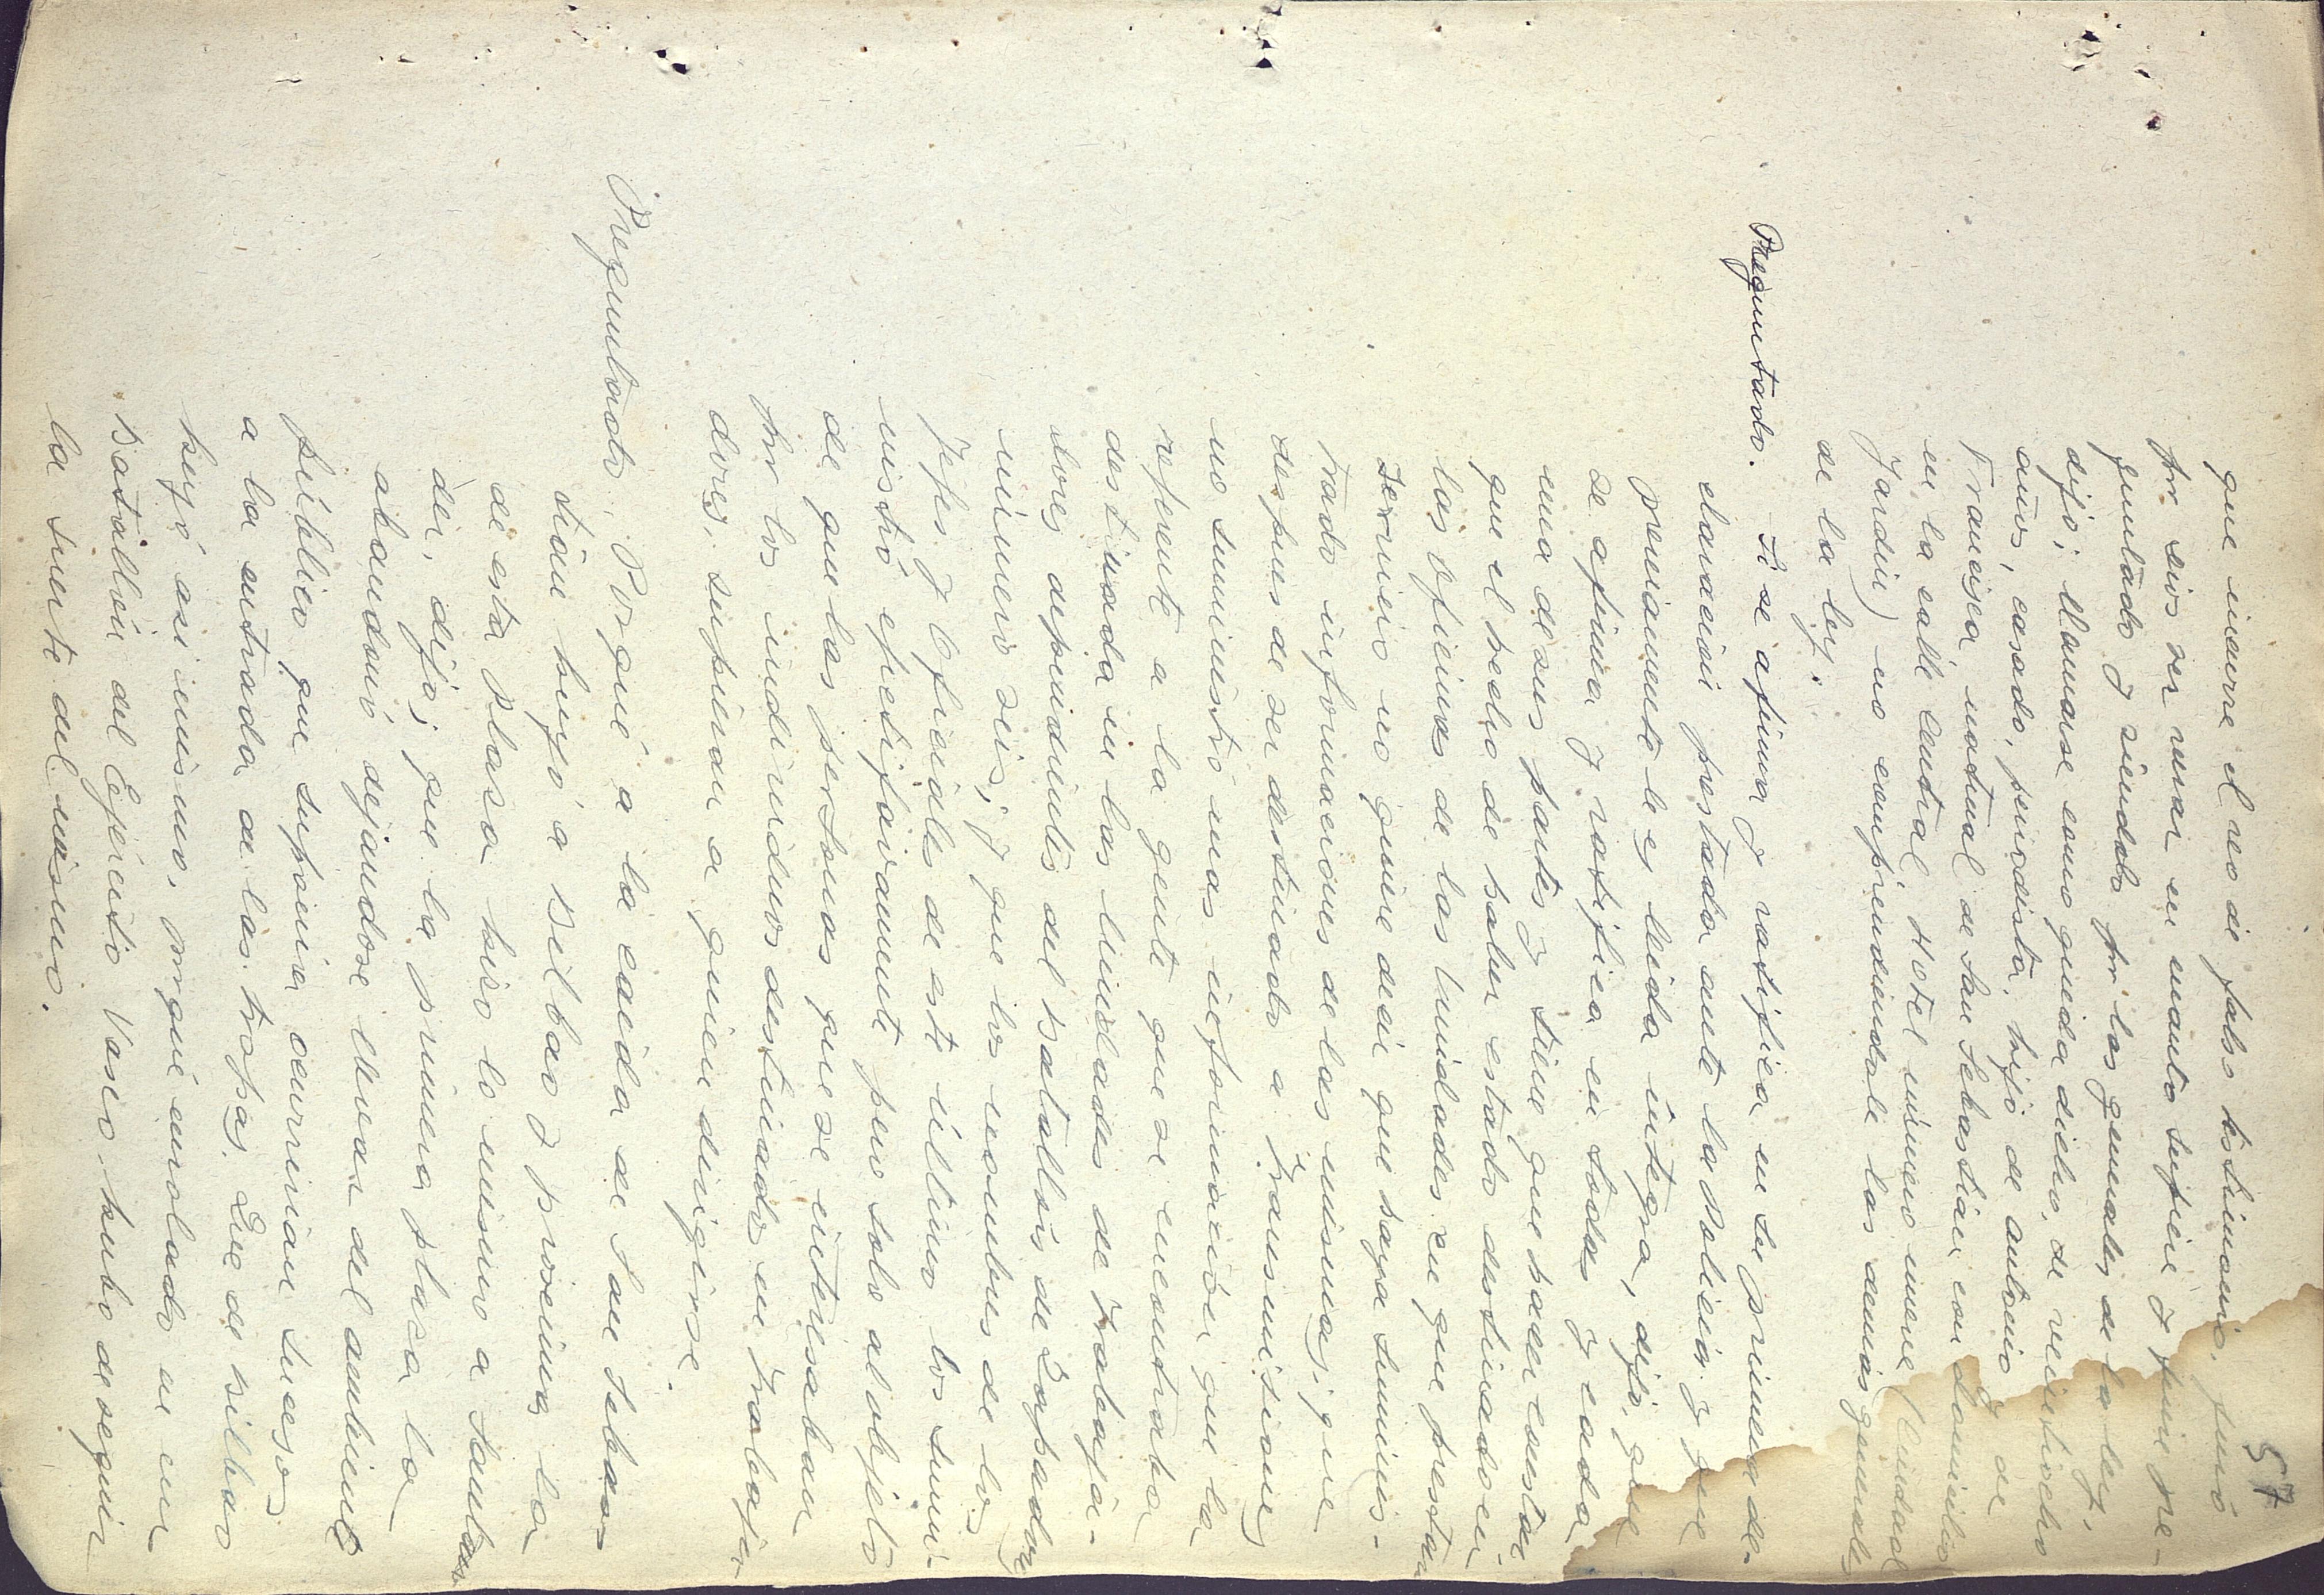 57
que incurre el reo de falso testimonio, juró
por Dios ser veraz en cuanto supiere y fuere pre-
guntado y siendolo por las generales de la ley,
dijo; llamarse como queda dicho, de veintiocho
años, casado, periodista, hijo de Antonio y de
Francisca, natural de San Sebastian con domicilio
en la calle Central, Hotel número nueve (Ciudad
Jardin) no comprendiendole las demás generales
de la ley.
Preguntado. Si se afirma y ratifica en su primera de-
claración prestada ante la Policia y que
previamente le es leida integra, dijo, que
se afirma y ratifica en todas y cada
una de sus partes y tiene que hacer constar
que el hecho de haber estado destinado en
las oficinas de las Unidades en que prestaba
servicio no quiere decir que haya suminis-
trado informaciones de las mismas; que
despues de ser destinado a Transmisiones
no suministró mas información que la
referente a la gente que se encontraba
destinada en las Unidades de Trabaja-
dores dependientes del Batallón de Zapadores
número seis; y que los nombres de los
Jefes y Oficiales de este último los sumi-
nistró efectivamente pero solo al objeto
de que las personas que se interesaban
por los individuos destinados en Trabaja-
dores, supieran a quien dirigirse.
Preguntado. Porqué a la caida de San Sebas-
tián huyó a Bilbao y proxima la
de esta plaza hizo lo mismo a Santan-
der, dijo; que la primera plaza la
abandonó dejandose llevar del ambiente
público que suponia ocurririan sucesos
a la entrada de las tropas. Que de Bilbao
huyó asi mismo, porque enrolado en un
Batallón del Ejército Vasco hubo de seguir
la suerte del mismo.